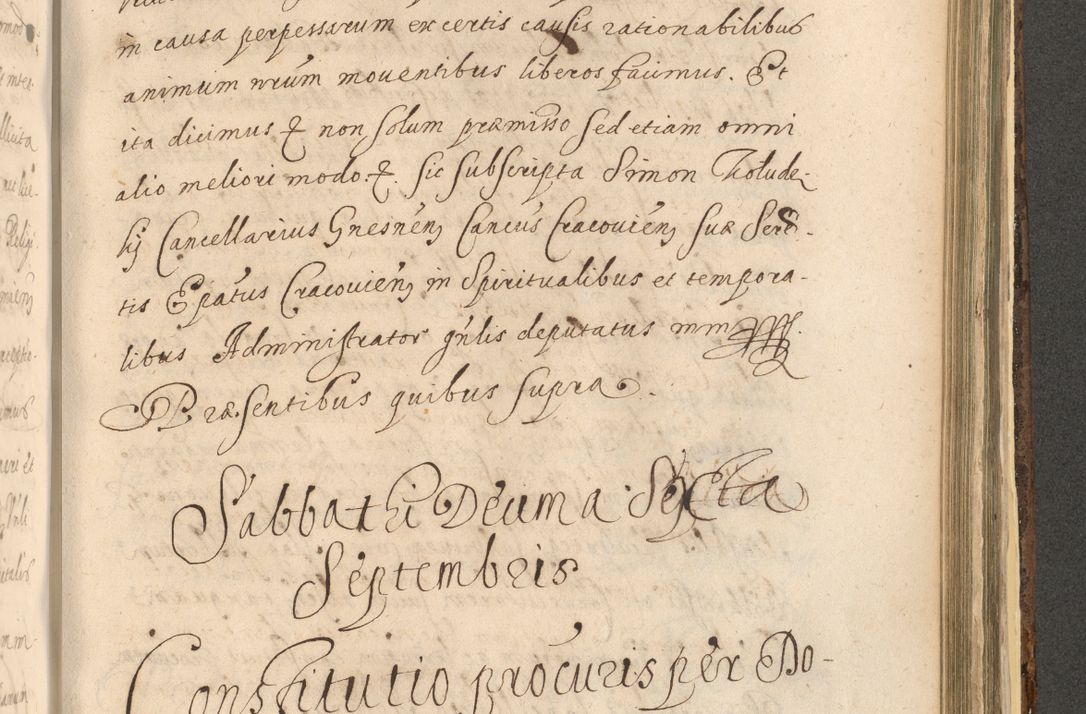 in causa perpessarum ex certis causis rationabilibus
animum nrum moventibus liberos facimus. Et
ita dicimus & non solum præmisso sed etiam omni
alio meliori modo. &. sic subscripta Simon Tholude-
sij Cancellarius Gnesnen, Cancus Cracovien, suæ Sere-
tis Epatus Cracovien, in Spiritualibus et tempora-
libus Administrator gnlis deputatus mm
Præsentibus quibus supra.
Sabbathi Decima Sexta
Septembris
Constitutio procuris per Do-